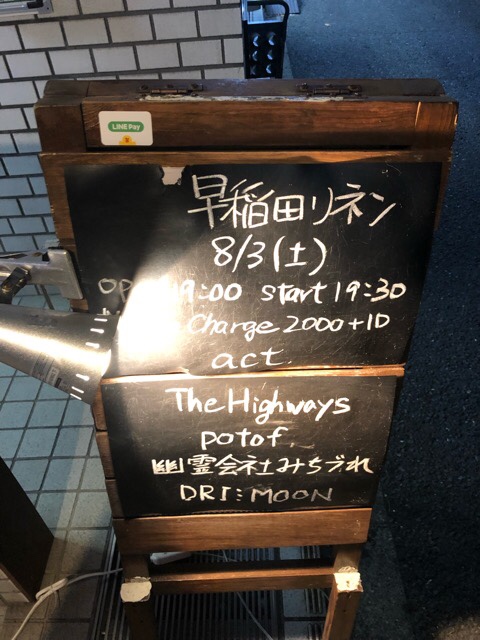 LINE Pay
早稲田リネン
8/3(土)
op 19:00 start 19:30
Charge 2000+1D
act.
The Highways
potof.
幽霊会社みちづれ
DRI:MOON